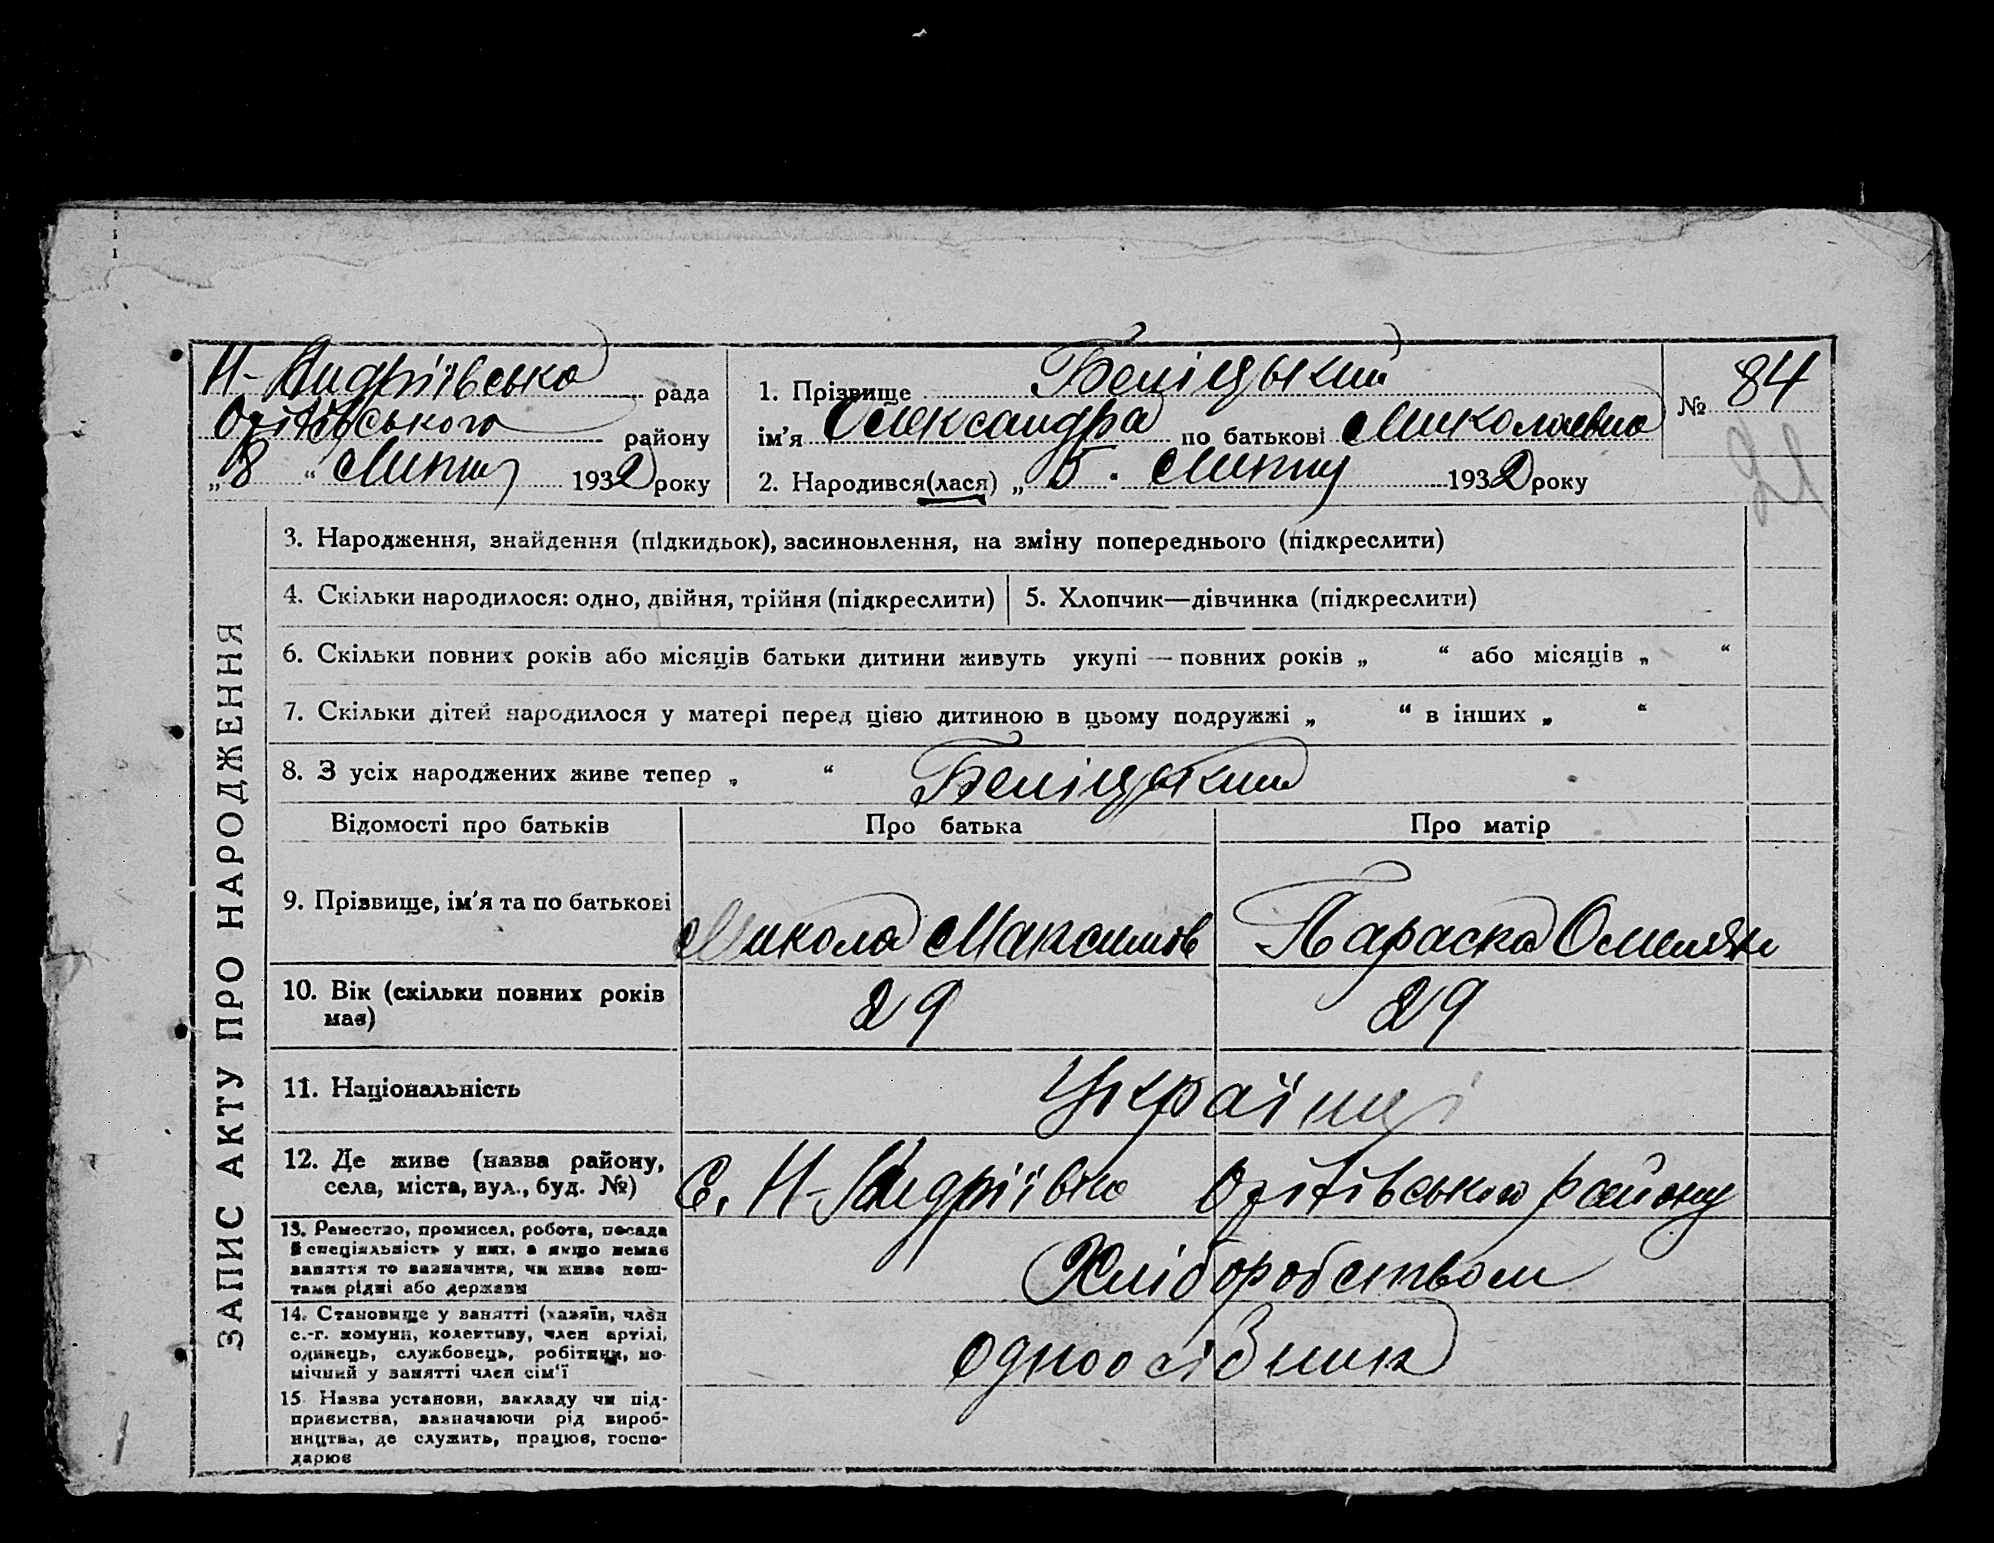 Н-Андріївська рада
Оріхівського району
„8“ Липня 1932 року
1. Прізвище Беліцький
ім'я Олександра по батькові Миколаевна
2. Народився(лася) „ 5. Липня 1932 року
№ 84
21
ЗАПИС АКТУ ПРО НАРОДЖЕННЯ
3. Народження, знайдення (підкидьок), засиновлення, на зміну попереднього (підкреслити)
4. Скільки народилося: одно, двійня, трійня (підкреслити)
5. Хлопчик—дівчинка (підкреслити)
6. Скільки повних років або місяців батьки дитини живуть укупі — повних років „ “ або місяців „ “
7. Скільки дітей народилося у матері перед цією дитиною в цьому подружжі „ “ в інших „ “
8. З усіх народжених живе тепер „ “ Беліцький
Відомості про батьків Про батька Про матір
9. Прізвище, ім'я та по батькові
Микола Максимов Параска Омелян
10. Вік (скільки повних років
має)
29 29
11. Національність
Українці
12. Де живе (назва району,
села, міста, вул., буд. №)
С. Н-Андріївка Оріхівського району
13. Ремество, промисел, робота, посада
й спеціяльність у них, а якщо немає
заняття то зазначити, чи живе кош-
тами рідні або держави
Хліборобством
14. Становище у занятті (хазяїн, член
с.-г. комуни, колективу, член артілі,
одинець, службовець, робітник, по-
мічний у занятті член сім'ї
одноосібник
15 Назва установи, закладу чи під-
приємства, зазначаючи рід вироб-
ництва, де служить, працює, госпо-
дарює